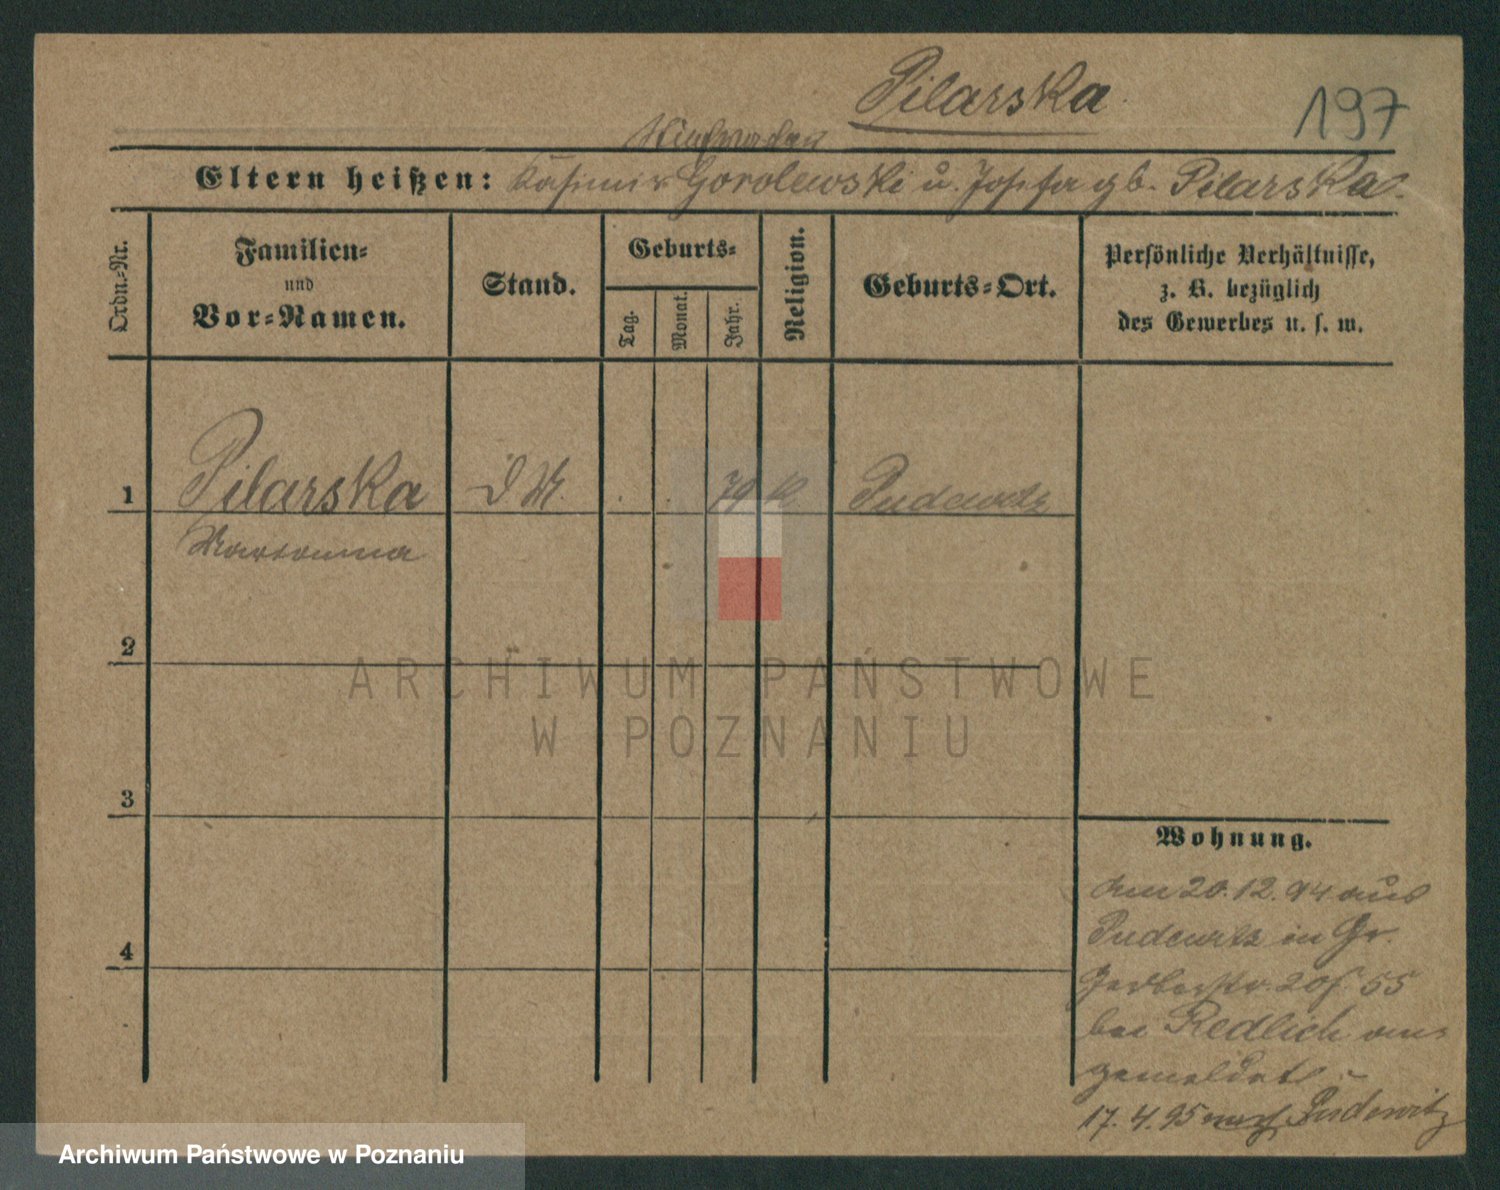 Pilarska
197
Eltern heißen: Kasimir Gorolewski u. Josefa gb. Pilarska.
Ordn.-Nr.
Familien-
und
Vor-Namen.
Stand.
Geburts-
Tag.
Monat.
Jahr.
Religion.
Geburts-Ort.
Persönliche Verhältnisse,
z. B. bezüglich
des Gewerbes u. s. w.
1 Pilarska D M. 79 K. Pudewitz
Marianna
2
3
4
Wohnung.
Am 20.12.94 aus
Pudewitz in Gr.
Gerberstr. 55
bei Redlich an-
gemeldet
17.4.95 nach Pudewitz
ARCHIWUM PAŃSTWOWE
W POZNANIU
Archiwum Państwowe w Poznaniu